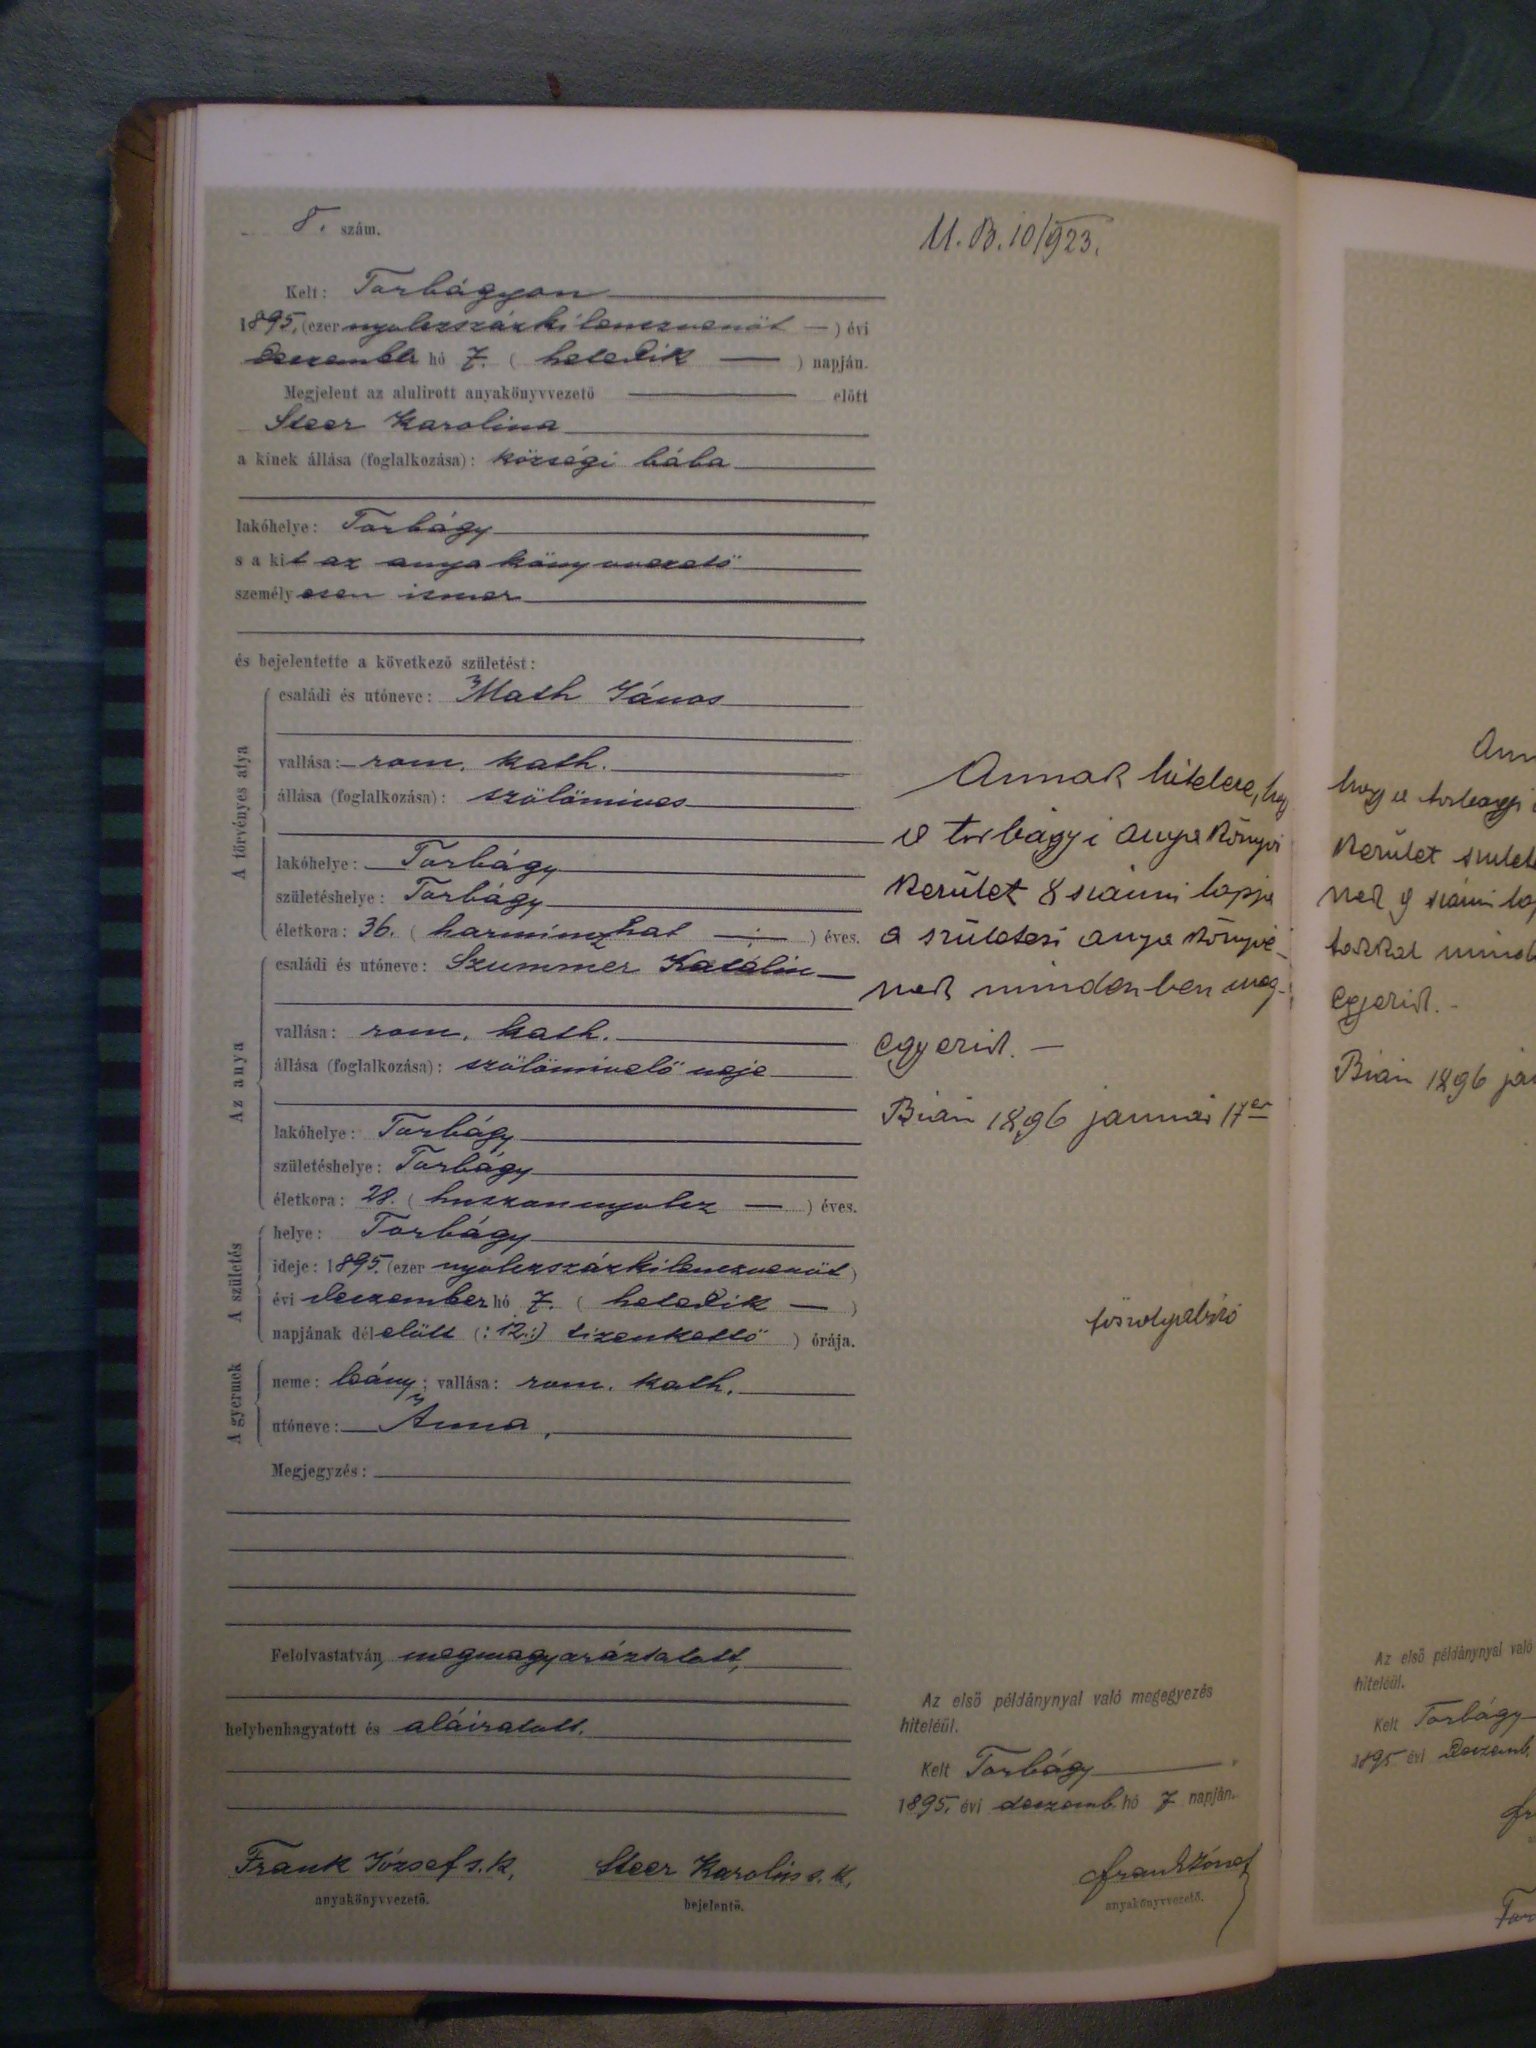 8. szám.
U. B. 10/923.
Kelt: Torbágyon
1895. (ezer nyolczszázkilenczvenöt — ) évi
deczember hó 7. ( hetedik — ) napján.
Megjelent az alulirott anyakönyvvezető — előtt
Steer Karolina
a kinek állása (foglalkozása): községi bába
lakóhelye: Torbágy
s a kit az anyakönyvvezető
személyesen ismer
és bejelentette a következő születést:
A törvényes atya
családi és utóneve: Math János
vallása: rom. kath.
állása (foglalkozása): szölömives
lakóhelye: Torbágy
születéshelye: Torbágy
életkora: 36. ( harminczhat — ) éves.
Az anya
családi és utóneve: Szummer Katalin
vallása: rom. kath.
állása (foglalkozása): szölömivelő neje
lakóhelye: Torbágy
születéshelye: Torbágy
életkora: 28. ( huszonnyolcz — ) éves.
A születés
helye: Torbágy
ideje: 1895. (ezer nyolczszázkilenczvenöt )
évi deczember hó 7. ( hetedik — )
napjának délelőtt (: 12. :) tizenkettő ) órája.
A gyermek
neme: leány; vallása: rom. kath.
utóneve: Anna,
Megjegyzés:
Felolvastatván, megmagyaráztatott,
helybenhagyatott és aláiratott.
Frank József s. k.
anyakönyvvezető.
Steer Karolin s. k.
bejelentő.
Annak hitelere, hogy
a torbágyi anyakönyvi
kerület 8 számi lapja
a születesi anyakönyvé-
nek mindenben meg-
egyezik. —
Bian 1896 január 17en
Az első példánynyal való megegyezés
hiteléül.
Kelt Torbágy
1895. évi deczemb. hó 7 napján.
Frank József
anyakönyvvezető.
hogy a torbagyi
kerület
nek 9 számi
egyezik. -
Bian 1896
Az első példánynyal való
hiteléül.
Kelt Torbágy
1895 évi deczemb.